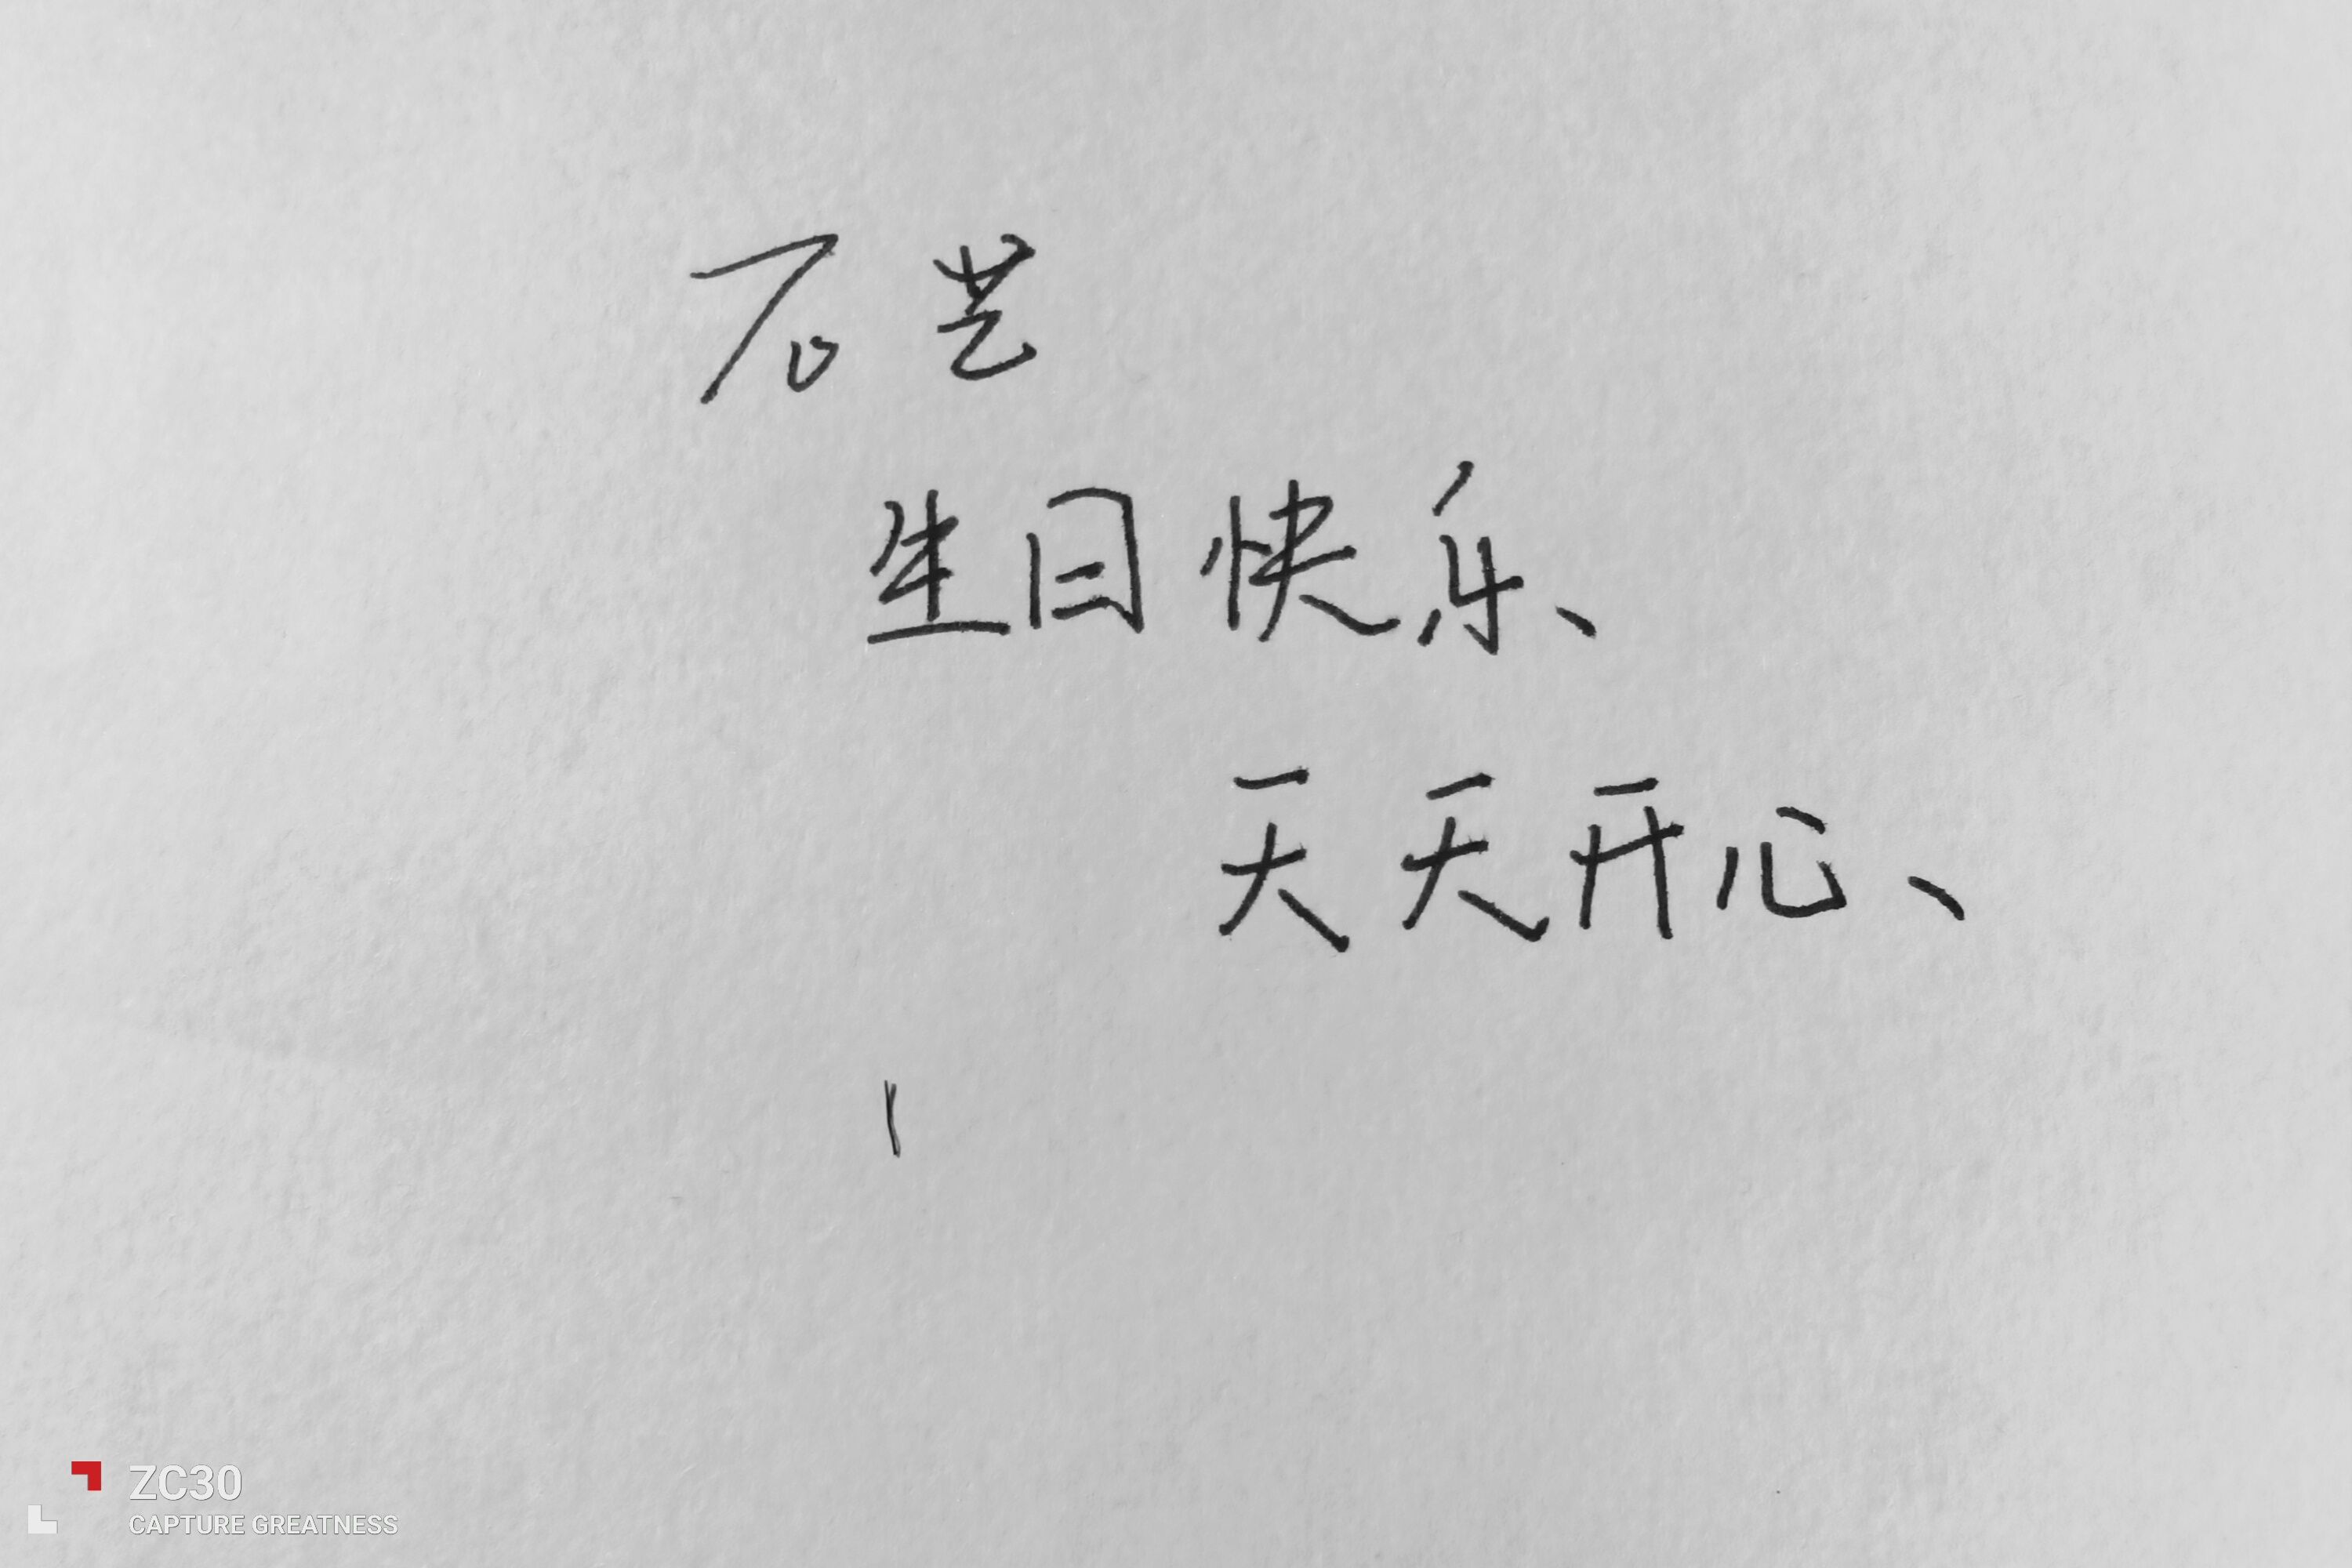 石艺
生日快乐、
天天开心、
ZC30
CAPTURE GREATNESS